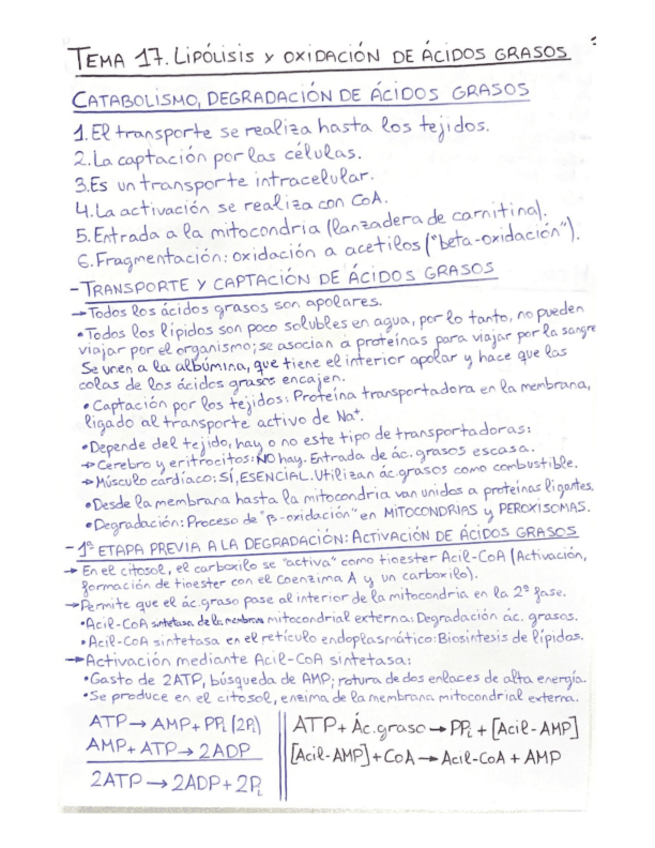 TEMA 17. LIPÓLISIS Y OXIDACIÓN DE ÁCIDOS GRASOS
CATABOLISMO, DEGRADACIÓN DE ÁCIDOS GRASOS
1. El transporte se realiza hasta los tejidos.
2. La captación por las células.
3. Es un transporte intracelular.
4. La activación se realiza con CoA.
5. Entrada a la mitocondria (lanzadera de carnitina).
6. Fragmentación: oxidación a acetilos ("beta-oxidación").
- TRANSPORTE Y CAPTACIÓN DE ÁCIDOS GRASOS
→ Todos los ácidos grasos son apolares.
• Todos los lípidos son poco solubles en agua, por lo tanto, no pueden
viajar por el organismo; se asocian a proteínas para viajar por la sangre
Se unen a la albúmina, que tiene el interior apolar y hace que las
colas de los ácidos grasos encajen.
• Captación por los tejidos: Proteína transportadora en la membrana,
ligado al transporte activo de Na⁺.
• Depende del tejido, hay o no este tipo de transportadoras:
→ Cerebro y eritrocitos: NO hay. Entrada de ác. grasos escasa.
→ Músculo cardíaco: SÍ, ESENCIAL. Utilizan ác. grasos como combustible.
• Desde la membrana hasta la mitocondria van unidos a proteínas ligantes.
• Degradación: Proceso de "β-oxidación" en MITOCONDRIAS y PEROXISOMAS.
- 1ª ETAPA PREVIA A LA DEGRADACIÓN: ACTIVACIÓN DE ÁCIDOS GRASOS
→ En el citosol, el carboxilo se "activa" como tioester Acil-CoA (Activación,
formación de tioester con el coenzima A y un carboxilo).
→ Permite que el ác. graso pase al interior de la mitocondria en la 2ª fase.
• Acil-CoA sintetasa de la membrana mitocondrial externa: Degradación ác. grasos.
• Acil-CoA sintetasa en el retículo endoplasmático: Biosíntesis de lípidos.
→ Activación mediante Acil-CoA sintetasa:
• Gasto de 2ATP, búsqueda de AMP; rotura de dos enlaces de alta energía.
• Se produce en el citosol, enzima de la membrana mitocondrial externa.
ATP → AMP + PPi (2Pi)
AMP + ATP → 2ADP
2ATP → 2ADP + 2Pi
ATP + Ác. graso → PPi + [Acil-AMP]
[Acil-AMP] + CoA → Acil-CoA + AMP